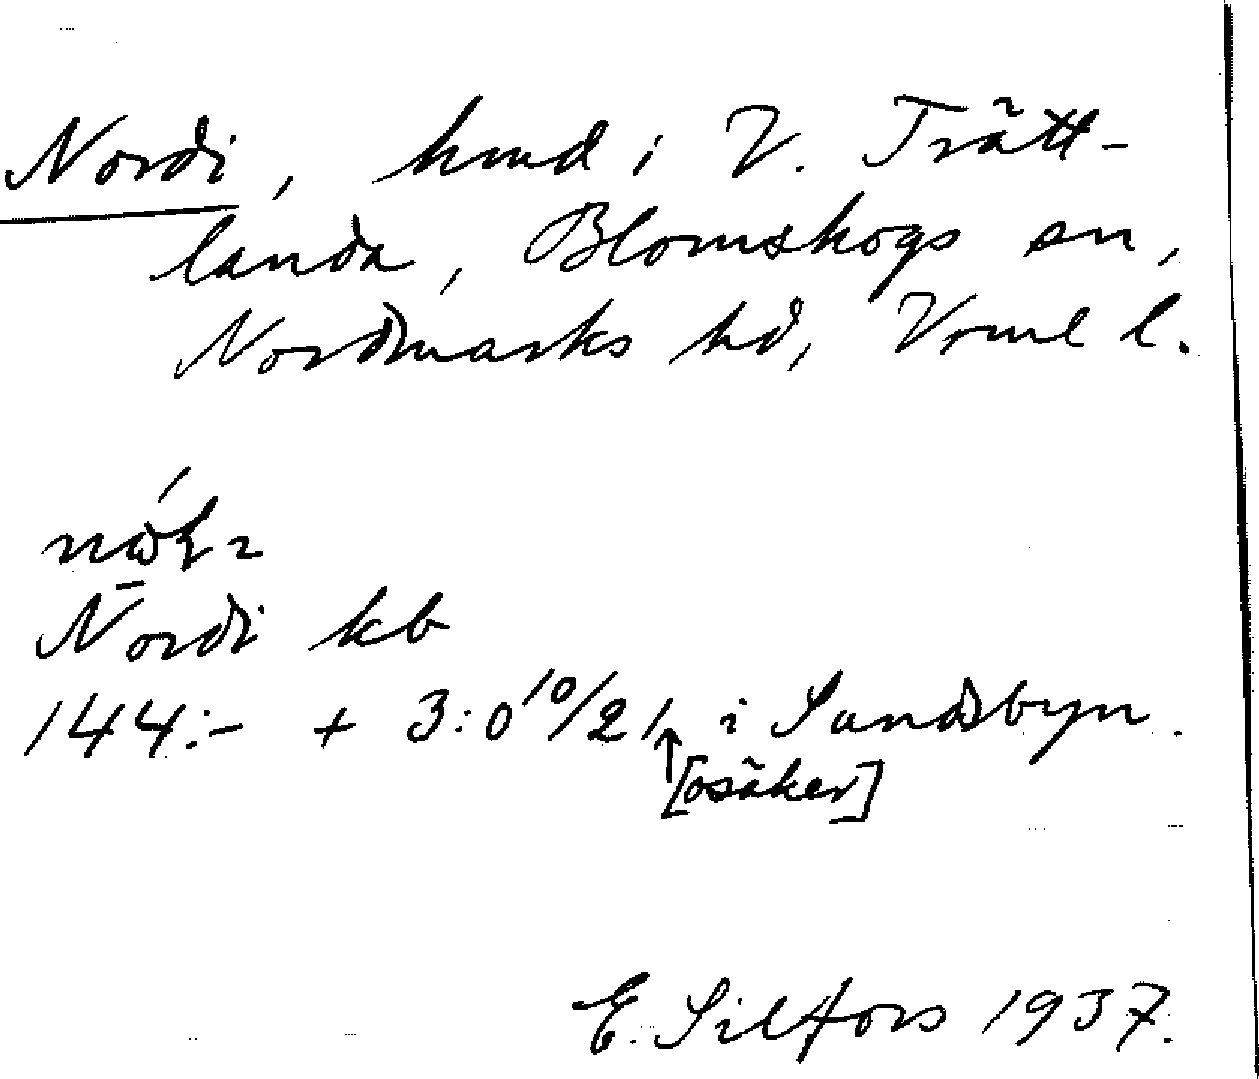 Nordi, hmd i V. Trätt-
landa, Blomskogs sn,
Nordmarks hd, Vrml l.
Nordi kb
144:- + 3:0 10/21, i Sundsbyn.
↑[osäker]
E. Silfors 1937.